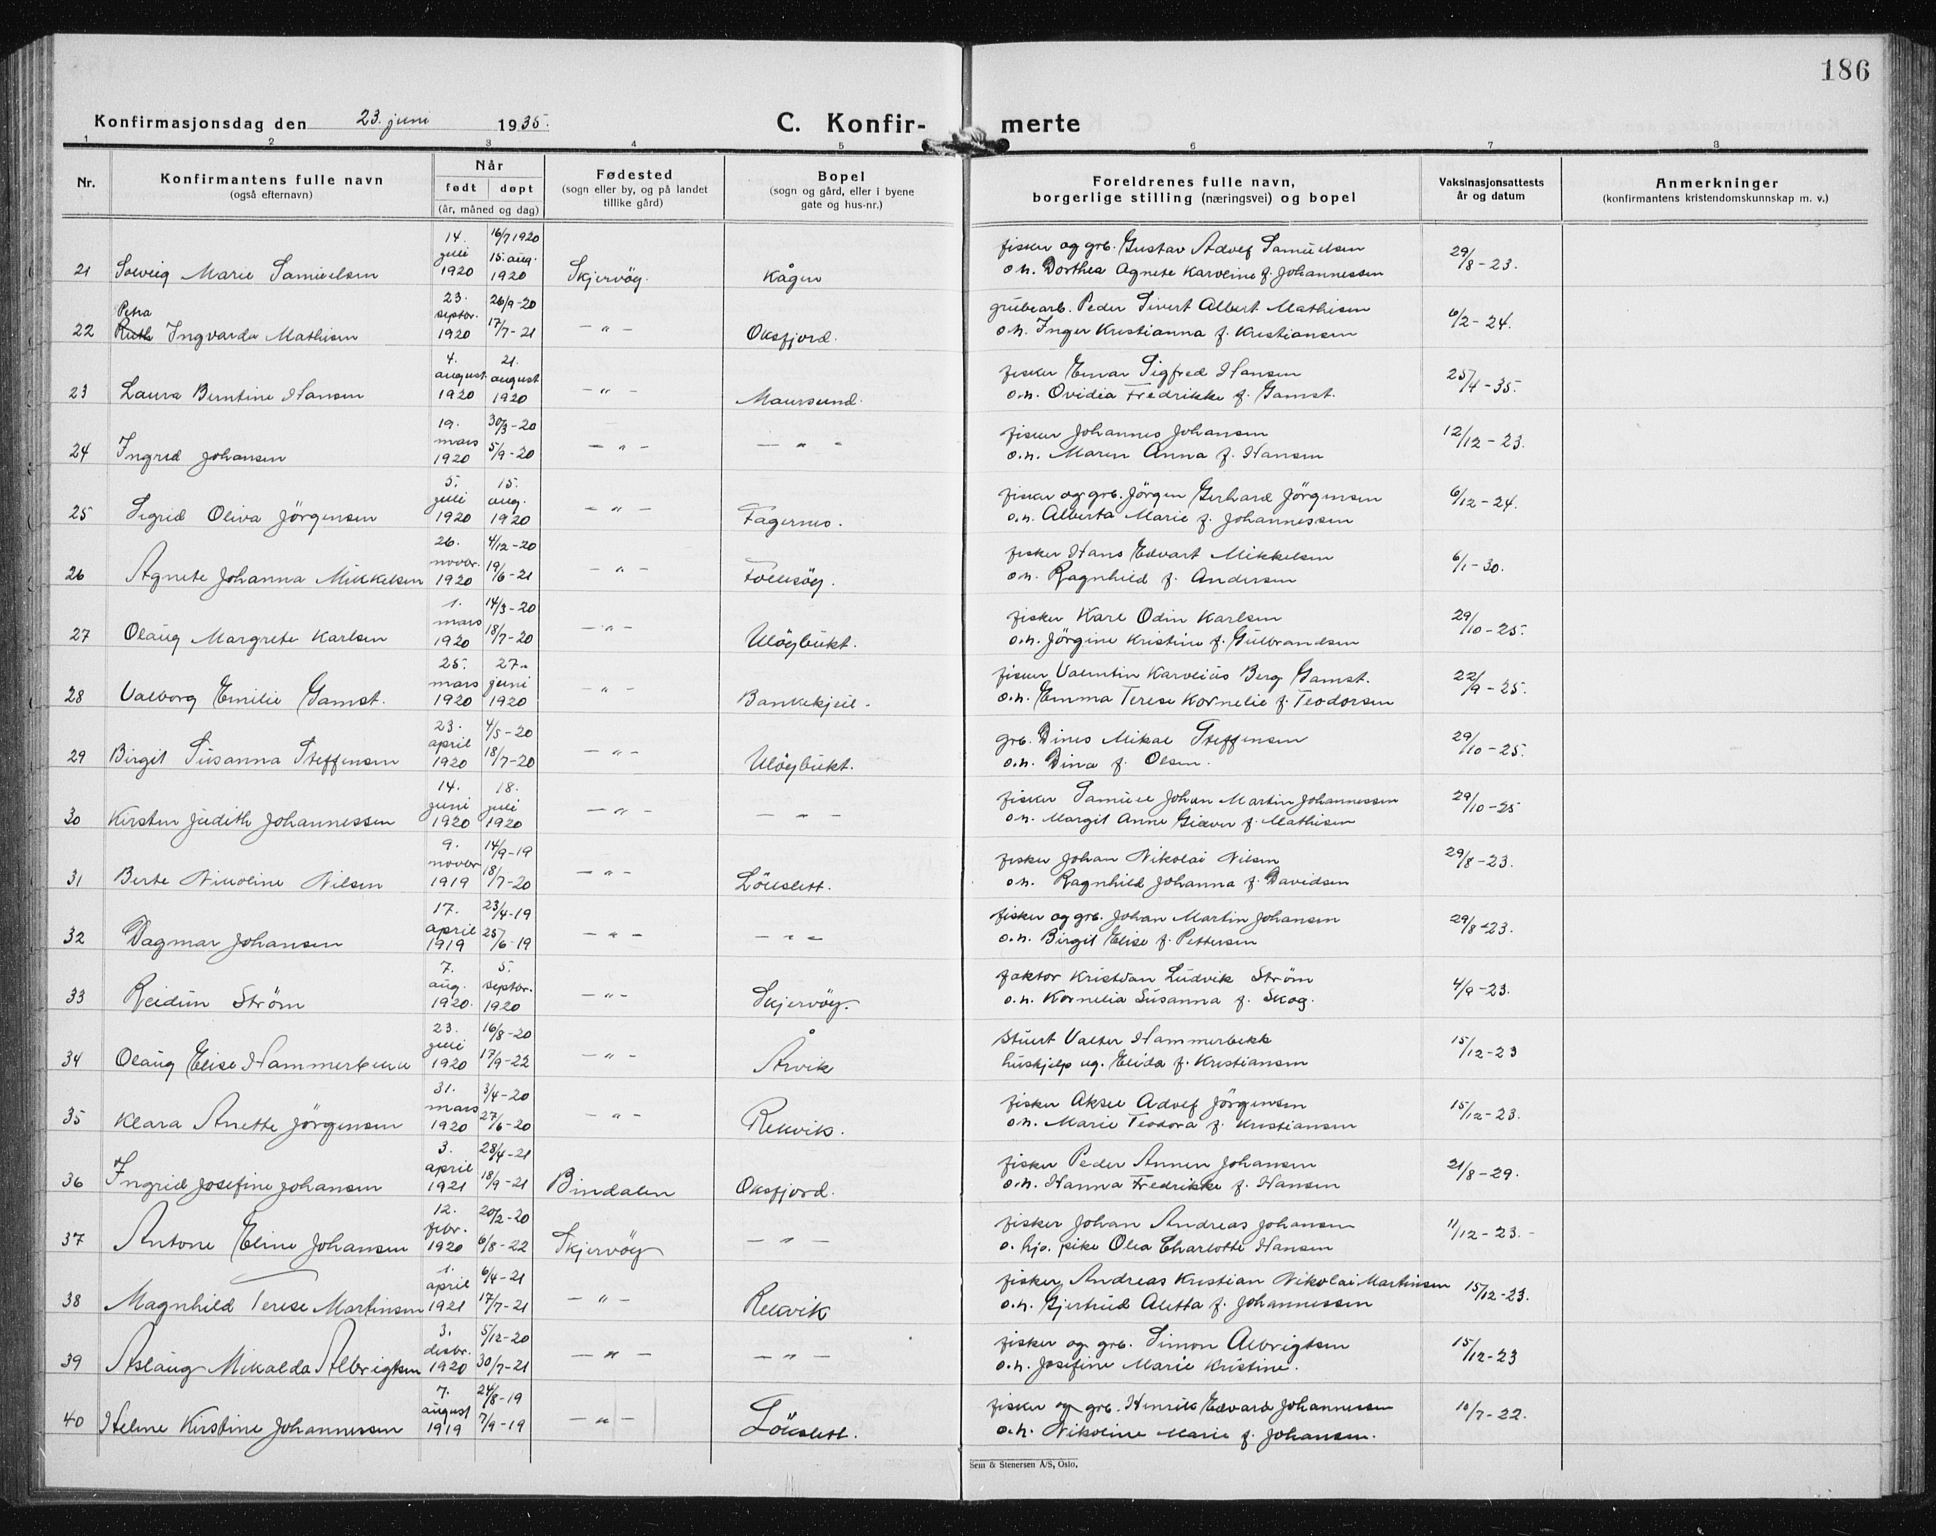 186
Konfirmasjonsdag den 23. juni 1935.
C. Konfir-merte
1 2 3 4 5 6 7 8
Nr.
Konfirmantens fulle navn
(også efternavn)
Når
født døpt
(år, måned og dag)
Fødested
(sogn eller by, og på landet
tillike gård)
Bopel
(sogn og gård, eller i byene
gate og hus-nr.)
Foreldrenes fulle navn,
borgerlige stilling (næringsvei) og bopel
Vaksinasjonsattests
år og datum
Anmerkninger
(konfirmantens kristendomskunnskap m. v.)
21 Solveig Marie Samuelsen 14. juli 1920 16/7 1920 15. aug. 1920 Skjervøy. Kågen
fisker og grb. Gustav Adolf Samuelsen
o.h. Dorthea Agnete Karoline f. Johannessen 29/8-23.
22 Petra Ruth Ingvarda Mathisen 23. septbr. 1920 26/9-20 17/7-21 -"- Oksfjord.
grubearb. Peder Sivert Albert Mathisen
o.h. Inger Kristianna f. Kristiansen 6/2-24.
23 Laura Berntine Hansen 4. august 1920 21. august 1920 -"- Maursund.
fisker Einar Sigfred Hansen
o.h. Ovidia Fredrikke f. Gamst. 25/4-35.
24 Ingrid Johansen 19. mars 1920 30/3-20 5/9-20 -"- -"-
fisker Johannes Johansen
o.h. Maren Anna f. Hansen 12/12-23.
25 Sigrid Oliva Jörgensen 5. juli 1920 15. aug. 1920 -"- Fagernes.
fisker og grb. Jörgen Gerhard Jörgensen
o.h. Alberta Marie f. Johannessen 6/12-24.
26 Agnete Johanna Mikkelsen 26. novbr. 1920 4/12-20 19/6-21 -"-
fisker Hans Edvart Mikkelsen
o.h. Ragnhild f. Andersen 6/1-30.
27 Olaug Margrete Karlsen 1. mars 1920 14/3-20 18/7-20 -"- Ulöybukt.
fisker Karl Odin Karlsen
o.h. Jörgine Kristine f. Gulbrandsen 29/10-25.
28 Valborg Emilie Gamst. 25. mars 1920 27. juni 1920 -"- Bankekjeil.
fisker Valentin Karolius Berg Gamst.
o.h. Emma Terese Kornelie f. Teodorsen 22/9-25.
29 Birgit Susanna Steffensen 23. april 1920 4/5-20 18/7-20 -"- Ulöybukt.
grb. Dines Mikal Steffensen
o.h. Dina f. Olsen. 29/10-25.
30 Kirsten Judith Johannessen 14. juni 1920 18. juli 1920 -"- -"-
fisker Samuel Johan Martin Johannessen
o.h. Margit Anne Giæver f. Mathisen 29/10-25
31 Berte Nikoline Nilsen 9. novbr 1919 14/9-19 18/7-20 -"- Lökslett.
fisker Johan Nikolai Nilsen
o.h. Ragnhild Johanna f. Davidsen 29/8-23.
32 Dagmar Johansen 17. april 1919 23/4-19 25/6-19 -"- -"-
fisker og grb. Johan Martin Johansen
o.h. Birgit Elise f. Pettersen 29/8-23.
33 Reidun Ström 7. aug. 1920. 5. septbr. 1920 -"- Skjervøy.
faktor Kristian Ludvik Ström
o.h. Kornelia Susanna f. Skog. 4/9-23.
34 Olaug Elise Hammerbekk 23. juli 1920 16/8-20 17/9-22 -"- Årvik
Stuert Valter Hammerbekk
huskjelp ug. Elida f. Kristiansen 15/12-23
35 Klara Anette Jörgensen 31. mars 1920 3/4-20 27/6-20 -"- Rekvik.
fisker Aksel Adolf Jörgensen
o.h. Marie Teodora f. Kristiansen 15/12-23.
36 Ingrid Josefine Johansen 3. april 1921 28/4-21 18/9-21 Bindalen Oksfjord.
fisker Peder Annen Johansen
o.h. Hanna Fredrikke f. Hansen 21/8-29.
37 Antone Eline Johansen 12. febr. 1920 20/2-20 6/8-22 Skjervöy -"-
fisker Johan Andreas Johansen
o. hjo. pike Olea Charlotte Hansen 11/12-23.
38 Magnhild Terese Martinsen 1. april 1921 6/4-21 17/7-21 -"- Rekvik
fisker Andreas Kristian Nikolai Martinsen
o.h. Gjertrud Aletta f. Johannessen 15/12-23.
39 Aslaug Mikalda Albrigtsen 3. desbr. 1920 5/12-20 30/7-21 -"- -"-
fisker og grb. Simon Albrigtsen
o.h. Josefine Marie Kristine. 15/12-23
40 Helene Kirstine Johannessen 7. august 1919 24/8-19 7/9-19 -"- Lökslett.
fisker og grb. Henrik Edvard Johannessen
o.h. Nikoline Marie f. Johansen. 10/7-22.
Sem & Stenersen A/S, Oslo.